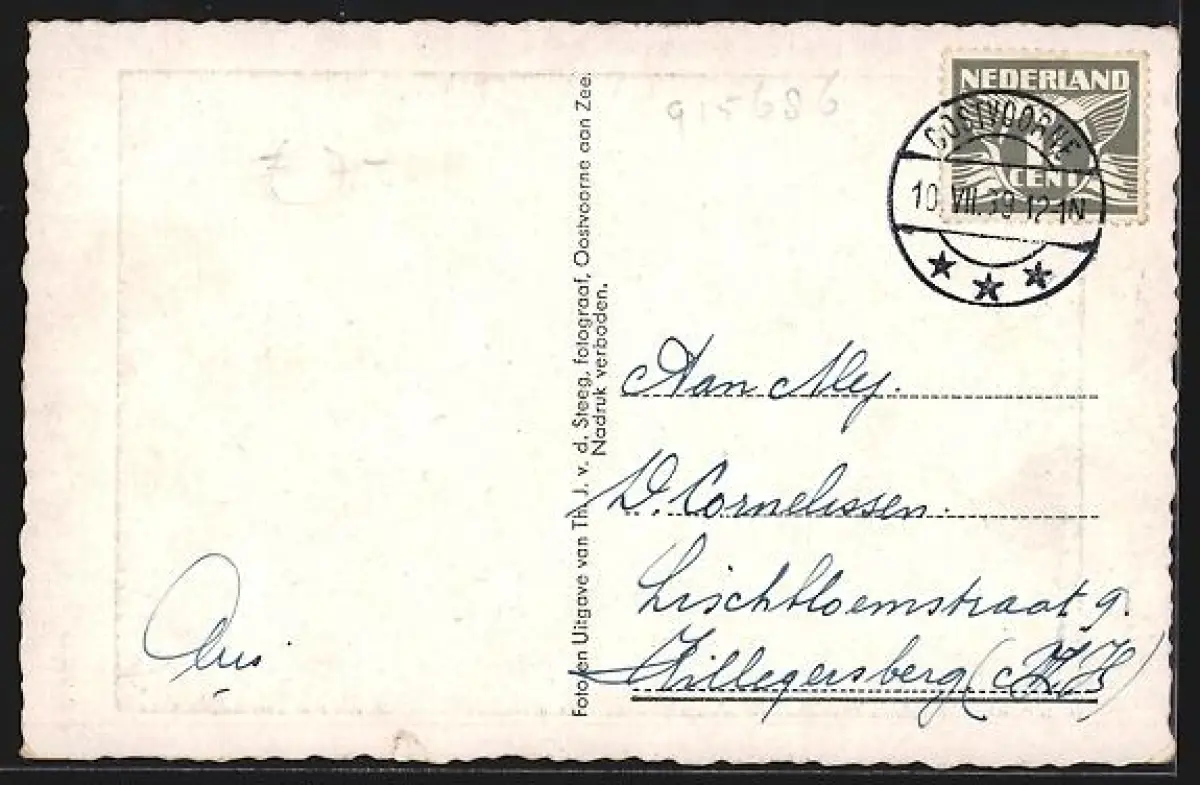 NEDERLAND
1
CENT
OOSTVOORNE
10.VII.39.12-1N
915686
7-
Foto en Uitgave van Th. J. v. d. Steeg, fotograaf, Oostvoorne aan Zee.
Nadruk verboden.
Aan Mej.
D. Cornelissen.
Lischbloemstraat 9.
Hillegersberg (Z.H)